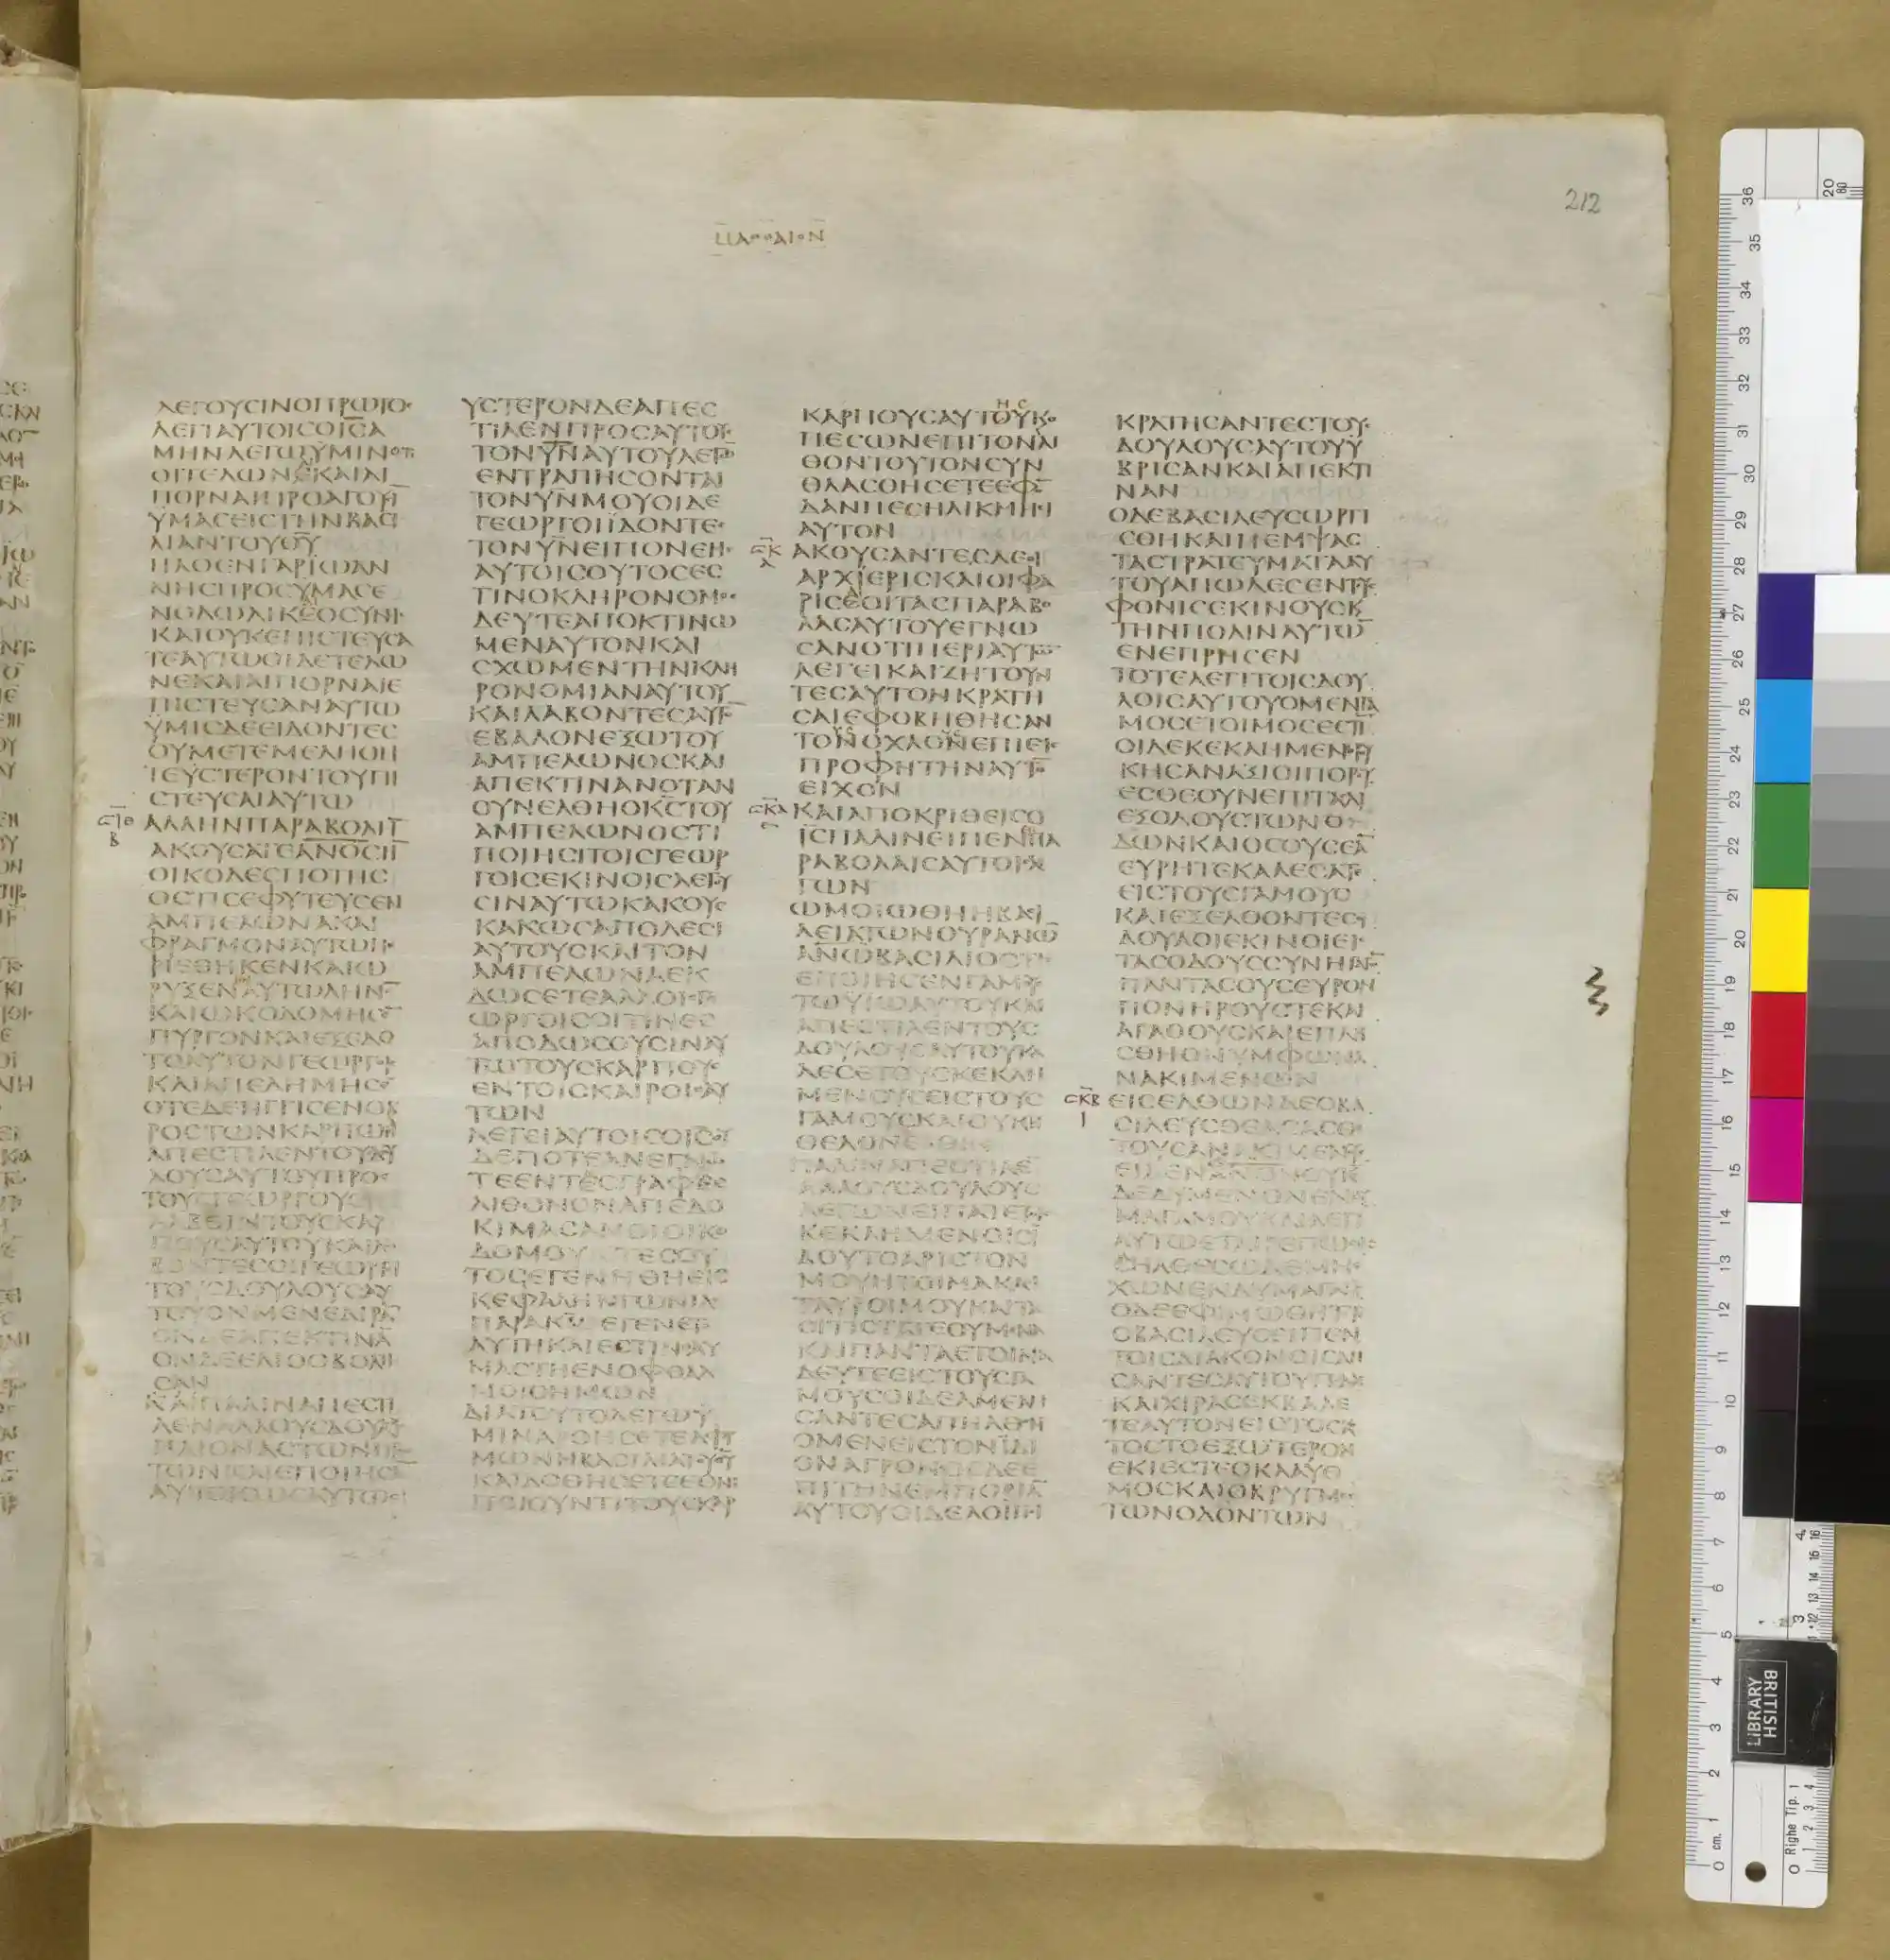 ΜΑΘΘΑΙΟΝ
212
ΛΕΓΟΥϹΙΝΟΠΡΩΤΟϹ
ΛΕΓΙΑΥΤΟΙϹΟΙ̅Ϲ̅Α
ΜΗΝΛΕΓΩΫΜΙΝΟΤΙ
ΟΙΤΕΛΩΝΕΚΑΙΑΙ
ΠΟΡΝΑΙΠΡΟΑΓΟΥϹΙ
ΫΜΑϹΕΙϹΤΗΝΒΑϹΙ
ΛΙΑΝΤΟΥΘ̅Υ̅
ΗΛΘΕΝΓΑΡΙΩΑΝ
ΝΗϹΠΡΟϹΥΜΑϹΕ
ΝΟΔΩΔΙΚΕΟϹΥΝΗϹ
ΚΑΙΟΥΚΕΠΙϹΤΕΥϹΑ
ΤΕΑΥΤΩΟΙΔΕΤΕΛΩ
ΝΕΚΑΙΑΙΠΟΡΝΑΙΕ
ΠΙϹΤΕΥϹΑΝΑΥΤΩ
ΫΜΙϹΔΕΕΙΔΟΝΤΕϹ
ΟΥΜΕΤΕΜΕΛΗΘΗ
ΤΕΥϹΤΕΡΟΝΤΟΥΠΙ
ϹΤΕΥϹΑΙΑΥΤΩ
ϹΙΘ Β
ΑΛΛΗΝΠΑΡΑΒΟΛΗ̅
ΑΚΟΥϹΑΤΕΑ̅Ν̅Ο̅Ϲ̅Η̅
ΟΙΚΟΔΕϹΠΟΤΗϹ
ΟϹΤΙϹΕΦΥΤΕΥϹΕΝ
ΑΜΠΕΛΩΝΑΚΑΙ
ΦΡΑΓΜΟΝΑΥΤΩΠΕ
ΡΙΕΘΗΚΕΝΚΑΙΩ
ΡΥΞΕΝΑΥΤΩΛΗΝΟ̅
ΚΑΙΩΚΟΔΟΜΗϹΕ̅
ΠΥΡΓΟΝΚΑΙΕΞΕΔΟ
ΤΟΑΥΤΟΝΓΕΩΡΓΟΙϹ
ΚΑΙΑΠΕΔΗΜΗϹΕ̅
ΟΤΕΔΕΗΓΓΙϹΕΝΟΚΑΙ
ΡΟϹΤΩΝΚΑΡΠΩΝ
ΑΠΕϹΤΙΛΕΝΤΟΥϹΔΟΥ
ΛΟΥϹΑΥΤΟΥΠΡΟϹ
ΤΟΥϹΓΕΩΡΓΟΥϹ
ΛΑΒΕΙΝΤΟΥϹΚΑΡ
ΠΟΥϹΑΥΤΟΥΚΑΙΛΑ
ΒΟΝΤΕϹΟΙΓΕΩΡΓΟΙ
ΤΟΥϹΔΟΥΛΟΥϹΑΥ
ΤΟΥΟΝΜΕΝΕΔΙΡΑ̅
ΟΝΔΕΑΠΕΚΤΙΝΑ̅
ΟΝΔΕΕΛΙΘΟΒΟΛΗ
ϹΑΝ
ΚΑΙΠΑΛΙΝΑΠΕϹΤΙ
ΛΕΝΑΛΛΟΥϹΔΟΥΛΟΥϹ
ΠΛΙΟΝΑϹΤΩΝΠΡΩ
ΤΩΝΚΑΙΕΠΟΙΗϹΑ̅
ΑΥΤΟΙϹΩϹΑΥΤΩϹ
ΥϹΤΕΡΟΝΔΕΑΠΕϹ
ΤΙΛΕΝΠΡΟϹΑΥΤΟΥϹ
ΤΟΝΥ̅Ν̅ΑΥΤΟΥΛΕΓΩ
ΕΝΤΡΑΠΗϹΟΝΤΑΙ
ΤΟΝΥ̅Ν̅ΜΟΥΟΙΔΕ
ΓΕΩΡΓΟΙΪΔΟΝΤΕϹ
ΤΟΝΥ̅Ν̅ΕΙΠΟΝΕΝ
ΑΥΤΟΙϹΟΥΤΟϹΕϹ
ΤΙΝΟΚΛΗΡΟΝΟΜΟϹ
ΔΕΥΤΕΑΠΟΚΤΙΝΩ
ΜΕΝΑΥΤΟΝΚΑΙ
ϹΧΩΜΕΝΤΗΝΚΛΗ
ΡΟΝΟΜΙΑΝΑΥΤΟΥ
ΚΑΙΛΑΒΟΝΤΕϹΑΥΤΟ̅
ΕΒΑΛΟΝΕΞΩΤΟΥ
ΑΜΠΕΛΩΝΟϹΚΑΙ
ΑΠΕΚΤΙΝΑΝΟΤΑΝ
ΟΥΝΕΛΘΗΟΚ̅Ϲ̅ΤΟΥ
ΑΜΠΕΛΩΝΟϹΤΙ
ΠΟΙΗϹΙΤΟΙϹΓΕΩΡ
ΓΟΙϹΕΚΙΝΟΙϹΛΕΓΟΥ
ϹΙΝΑΥΤΩΚΑΚΟΥϹ
ΚΑΚΩϹΑΠΟΛΕϹΙ
ΑΥΤΟΥϹΚΑΙΤΟΝ
ΑΜΠΕΛΩΝΑΕΚ
ΔΩϹΕΤΕΑΛΛΟΙϹΓΕ
ΩΡΓΟΙϹΟΙΤΙΝΕϹ
ΑΠΟΔΩϹΟΥϹΙΝΑΥ
ΤΩΤΟΥϹΚΑΡΠΟΥϹ
ΕΝΤΟΙϹΚΑΙΡΟΙϹΑΥ
ΤΩΝ
ΛΕΓΕΙΑΥΤΟΙϹΟΙ̅Ϲ̅ΟΥ
ΔΕΠΟΤΕΑΝΕΓΝΩ
ΤΕΕΝΤΕϹΓΡΑΦΑΙϹ
ΛΙΘΟΝΟΝΑΠΕΔΟ
ΚΙΜΑϹΑΝΟΙΟΙΚΟ
ΔΟΜΟΥΝΤΕϹΟΥ
ΤΟϹΕΓΕΝΗΘΗΕΙϹ
ΚΕΦΑΛΗΝΓΩΝΙΑϹ
ΠΑΡΑΚ̅Υ̅ΕΓΕΝΕΤΟ
ΑΥΤΗΚΑΙΕϹΤΙΝΘΑΥ
ΜΑϹΤΗΕΝΟΦΘΑΛ
ΜΟΙϹΗΜΩΝ
ΔΙΑΤΟΥΤΟΛΕΓΩΫ
ΜΙΝΑΡΘΗϹΕΤΕΑΦΥ
ΜΩΝΗΒΑϹΙΛΙΑΤΟΥΘ̅Υ̅
ΚΑΙΔΟΘΗϹΕΤΕΕΘΝΙ
ΠΟΙΟΥΝΤΙΤΟΥϹΚΑΡ
ΗϹ
ΚΑΡΠΟΥϹΑΥΤΟΥΚΑΙΟ
ΠΕϹΩΝΕΠΙΤΟΝΛΙ
ΘΟΝΤΟΥΤΟΝϹΥΝ
ΘΛΑϹΘΗϹΕΤΕΕΦΟ̅
ΔΑΝΠΕϹΗΛΙΚΜΗϹΙ
ΑΥΤΟΝ
ϹΚ Α
ΑΚΟΥϹΑΝΤΕϹΔΕΟΙ
ΑΡΧΪΕΡΙϹΚΑΙΟΙΦΑ
ΡΙϹΕΟΙΤΑϹΠΑΡΑΒΟ
ΛΑϹΑΥΤΟΥΕΓΝΩ
ϹΑΝΟΤΙΠΕΡΙΑΥΤΩ̅
ΛΕΓΕΙΚΑΙΖΗΤΟΥΝ
ΤΕϹΑΥΤΟΝΚΡΑΤΗ
ϹΑΙΕΦΟΒΗΘΗϹΑΝ
ΤΟΝΟΧΛΟΝΕΠΙΕΙϹ
ΠΡΟΦΗΤΗΝΑΥΤΟ̅
ΕΙΧΟΝ
ϹΚΑ Ε
ΚΑΙΑΠΟΚΡΙΘΕΙϹΟ
Ι̅Ϲ̅ΠΑΛΙΝΕΙΠΕΝΠΑ
ΡΑΒΟΛΑΙϹΑΥΤΟΙϹΛΕ
ΓΩΝ
ΩΜΟΙΩΘΗΗΒΑϹΙ
ΛΕΙΑΤΩΝΟΥΡΑΝΩ̅
Α̅Ν̅Ω̅ΒΑϹΙΛΙΟϹΤΙϹ
ΕΠΟΙΗϹΕΝΓΑΜΟΥϹ
ΤΩΫΙΩΑΥΤΟΥΚΑΙ
ΑΠΕϹΤΙΛΕΝΤΟΥϹ
ΔΟΥΛΟΥϹΑΥΤΟΥΚΑ
ΛΕϹΕΤΟΥϹΚΕΚΛΗ
ΜΕΝΟΥϹΕΙϹΤΟΥϹ
ΓΑΜΟΥϹΚΑΙΟΥΚΗ
ΘΕΛΟΝΕΛΘΙΝ
ΠΑΛΙΝΑΠΕϹΤΙΛΕ̅
ΑΛΛΟΥϹΔΟΥΛΟΥϹ
ΛΕΓΩΝΕΙΠΑΤΕΤΟΙϹ
ΚΕΚΛΗΜΕΝΟΙϹΪ
ΔΟΥΤΟΑΡΙϹΤΟΝ
ΜΟΥΗΤΟΙΜΑΚΑΟΙ
ΤΑΥΡΟΙΜΟΥΚΑΙΤΑ
ϹΙΤΙϹΤΑΤΕΘΥΜΕΝΑ
ΚΑΙΠΑΝΤΑΕΤΟΙΜΑ
ΔΕΥΤΕΕΙϹΤΟΥϹΓΑ
ΜΟΥϹΟΙΔΕΑΜΕΛΗ
ϹΑΝΤΕϹΑΠΗΛΘΟΝ
ΟΜΕΝΕΙϹΤΟΝΪΔΙ
ΟΝΑΓΡΟΝΟϹΔΕΕ
ΠΙΤΗΝΕΜΠΟΡΙΑ̅
ΑΥΤΟΥΟΙΔΕΛΟΙΠΟΙ
ΚΡΑΤΗϹΑΝΤΕϹΤΟΥϹ
ΔΟΥΛΟΥϹΑΥΤΟΥΫ
ΒΡΙϹΑΝΚΑΙΑΠΕΚΤΙ
ΝΑΝ
ΟΔΕΒΑϹΙΛΕΥϹΩΡΓΙ
ϹΘΗΚΑΙΠΕΜΨΑϹ
ΤΑϹΤΡΑΤΕΥΜΑΤΑΑΥ
ΤΟΥΑΠΩΛΕϹΕΝΤΟΥϹ
ΦΟΝΙϹΕΚΙΝΟΥϹΚΑΙ
ΤΗΝΠΟΛΙΝΑΥΤΩ̅
ΕΝΕΠΡΗϹΕΝ
ΤΟΤΕΛΕΓΙΤΟΙϹΔΟΥ
ΛΟΙϹΑΥΤΟΥΟΜΕΝΓΑ
ΜΟϹΕΤΟΙΜΟϹΕϹΤΙ
ΟΙΔΕΚΕΚΛΗΜΕΝΟΙΟΥ
ΚΗϹΑΝΑΞΙΟΙΠΟΡΕΥ
ΕϹΘΕΟΥΝΕΠΙΤΑϹΔΙ
ΕΞΟΔΟΥϹΤΩΝΟ
ΔΩΝΚΑΙΟϹΟΥϹΕΑ̅
ΕΥΡΗΤΕΚΑΛΕϹΑΤΕ
ΕΙϹΤΟΥϹΓΑΜΟΥϹ
ΚΑΙΕΞΕΛΘΟΝΤΕϹΟΙ
ΔΟΥΛΟΙΕΚΙΝΟΙΕΙϹ
ΤΑϹΟΔΟΥϹϹΥΝΗΓΑΓΟ̅
ΠΑΝΤΑϹΟΥϹΕΥΡΟΝ
ΠΟΝΗΡΟΥϹΤΕΚΑΙ
ΑΓΑΘΟΥϹΚΑΙΕΠΛΗ
ϹΘΗΟΝΥΜΦΩΝΑ
ΝΑΚΙΜΕΝΩΝ
ϹΚΒ Ι
ΕΙϹΕΛΘΩΝΔΕΟΒΑ
ϹΙΛΕΥϹΘΕΑϹΑϹΘΕ
ΤΟΥϹΑΝΑΚΙΜΕΝΟΥϹ
ΕΙΔΕΝΑ̅Ν̅Ο̅Ν̅ΟΥΚΕ̅
ΔΕΔΥΜΕΝΟΝΕΝΔΥ
ΜΑΓΑΜΟΥΚΑΙΛΕΓΙ
ΑΥΤΩΕΤΑΙΡΕΠΩϹ
ΕΙϹΗΛΘΕϹΩΔΕΜΗΕ
ΧΩΝΕΝΔΥΜΑΓΑΜΟΥ
ΟΔΕΕΦΙΜΩΘΗΤΟΤΕ
ΟΒΑϹΙΛΕΥϹΕΙΠΕΝ
ΤΟΙϹΔΙΑΚΟΝΟΙϹΔΗ
ϹΑΝΤΕϹΑΥΤΟΥΠΟΔΑϹ
ΚΑΙΧΙΡΑϹΕΚΒΑΛΕ
ΤΕΑΥΤΟΝΕΙϹΤΟϹΚΟ
ΤΟϹΤΟΕΞΩΤΕΡΟΝ
ΕΚΙΕϹΤΕΟΚΛΑΥΘ
ΜΟϹΚΑΙΟΒΡΥΓΜΟϹ
ΤΩΝΟΔΟΝΤΩΝ